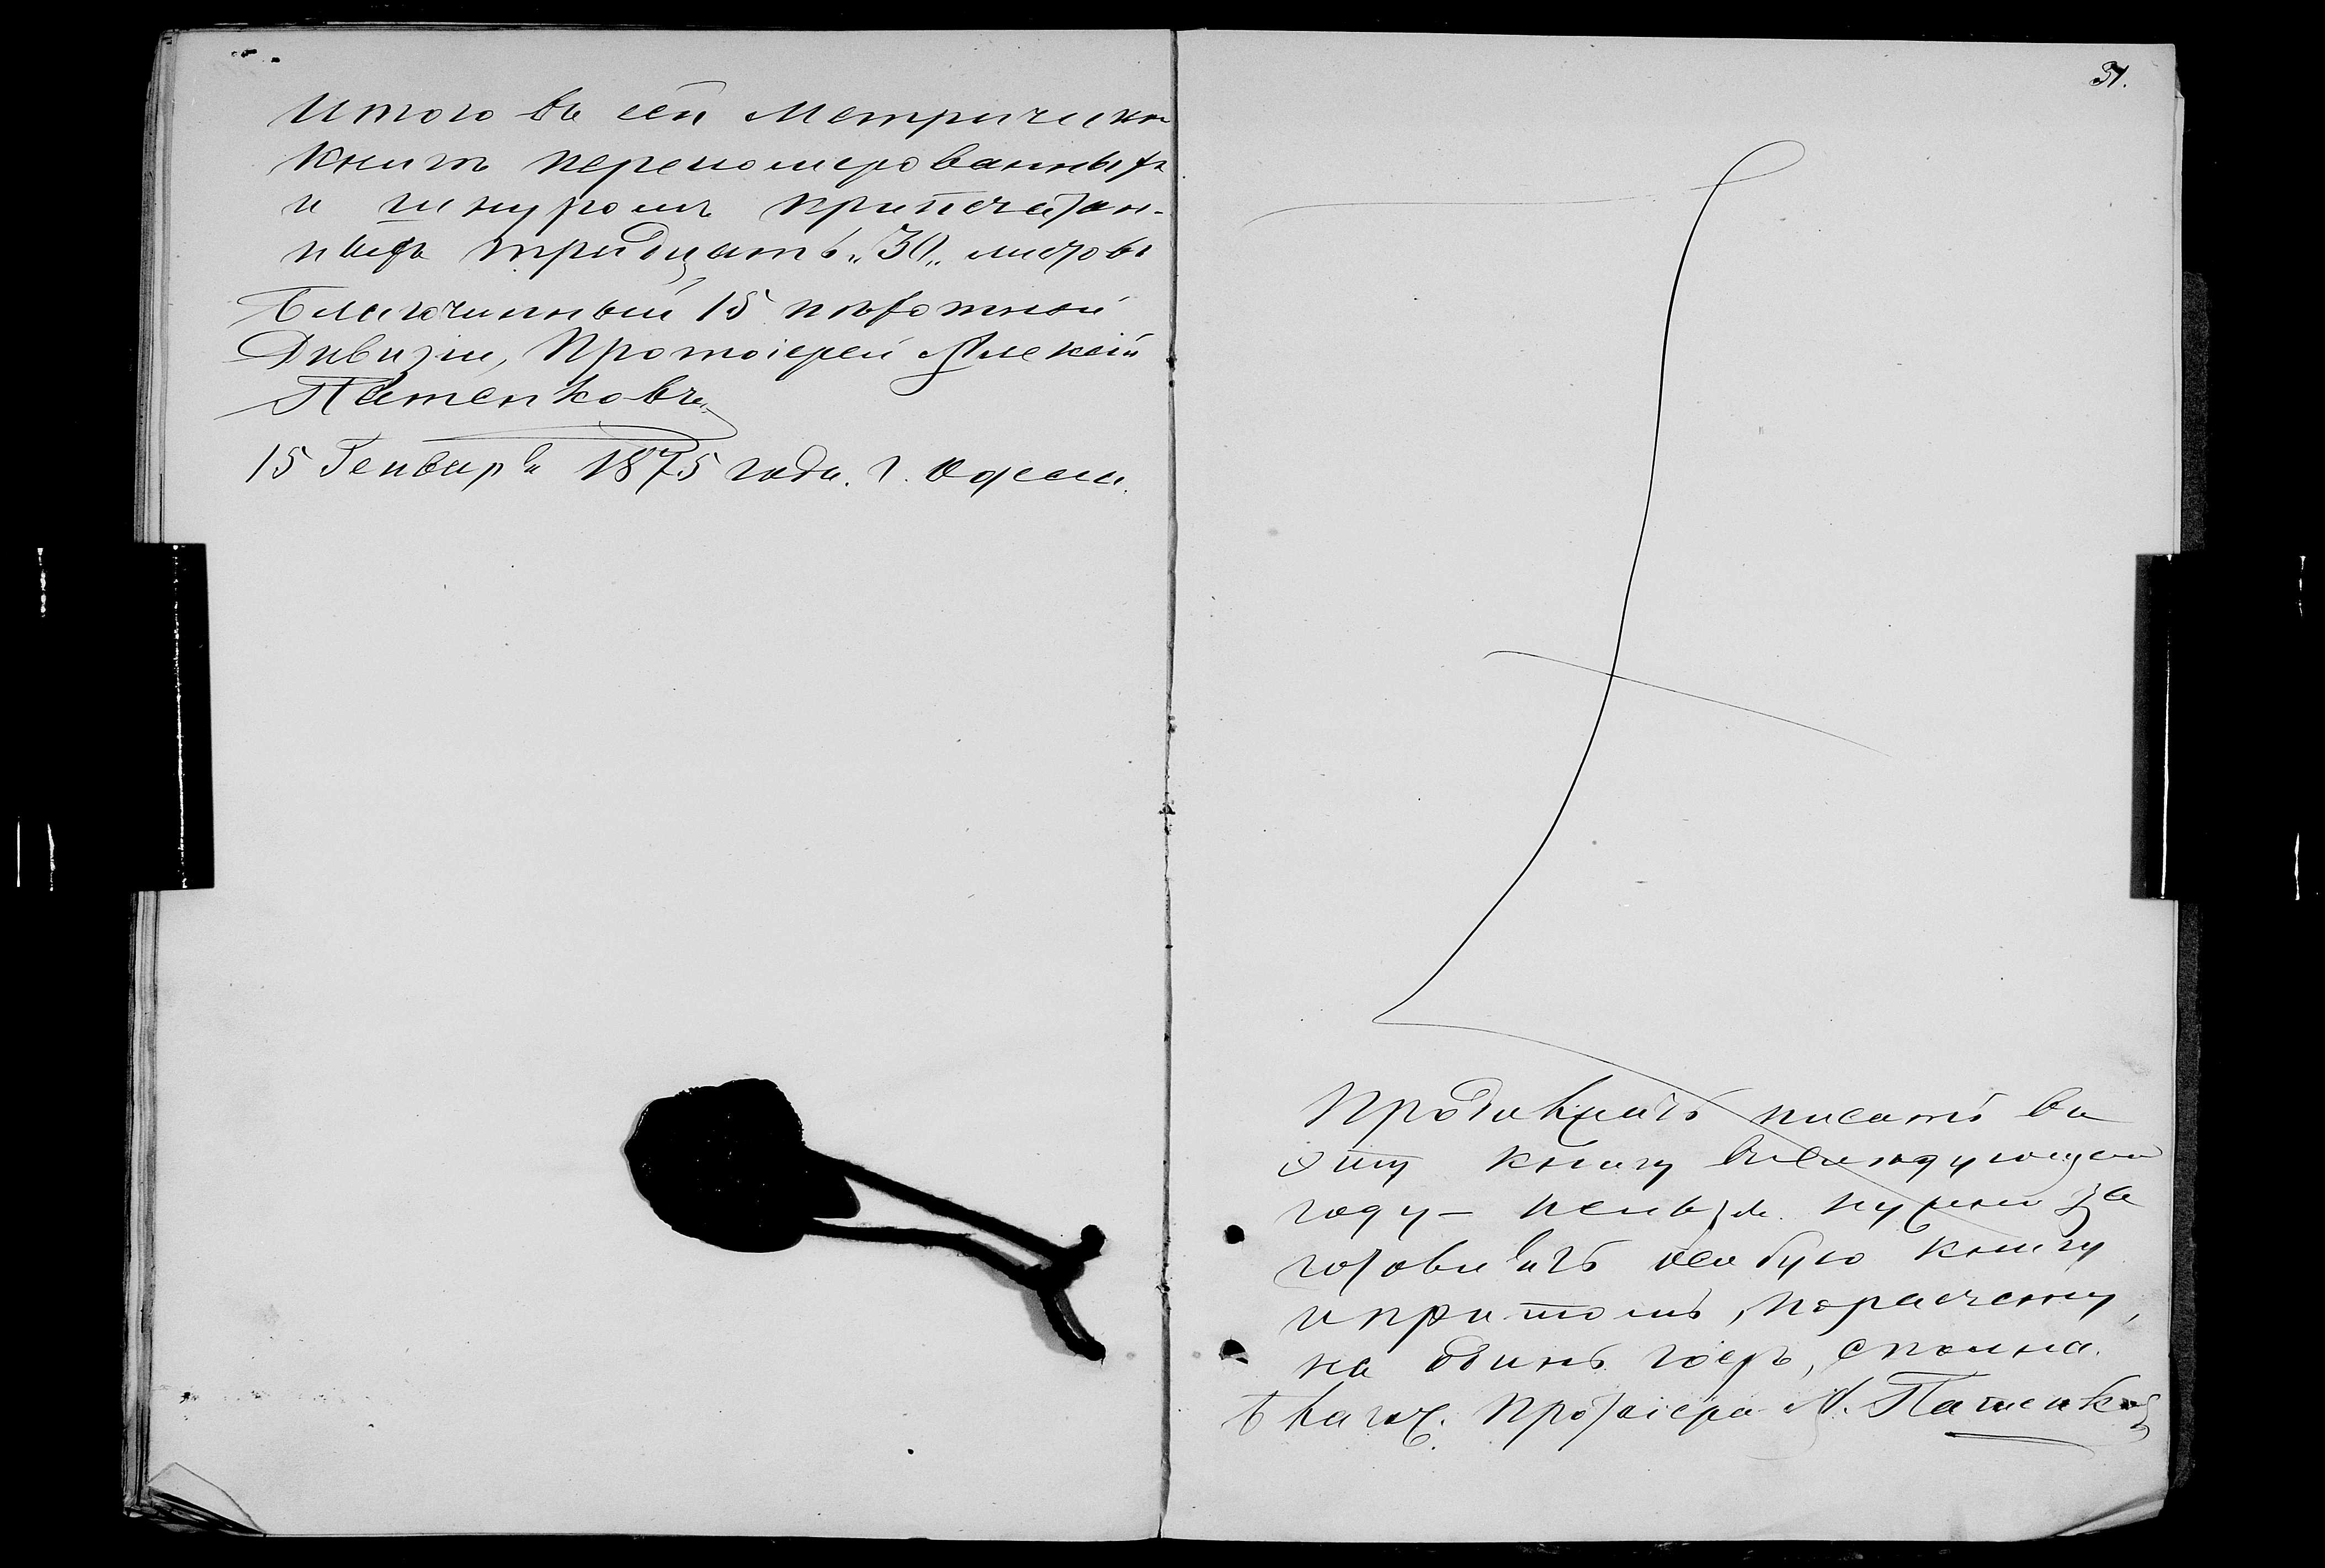 Итого въ сей Метрической
Книгѣ переномерованныхъ
и шнуромъ припечатан-
ныхъ тридцать „30„ листовъ
Благочинный 15 пѣхотной
Дивизіи, Протоіерей Алексій
15 Генваря 1875 года. г. Одесса.
31.
Продолжать писать въ
эту книгу въ слѣдующемъ
году — нельзя. нужно за
готовлять особую книгу
и притомъ, по расчету,
на одинъ годъ, сполна.
Благоч. Протоіерей А.